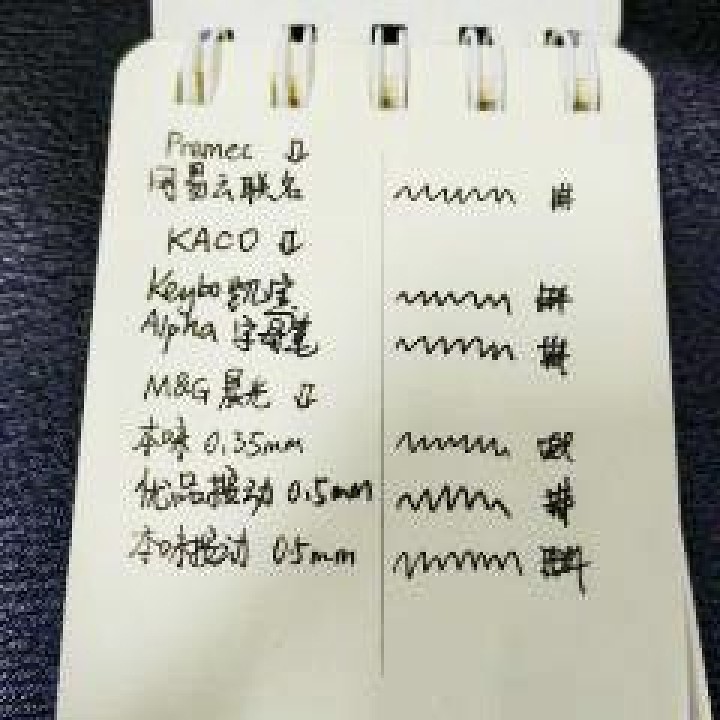 Pramec ⇩
网易云联名
KACO ⇩
Keybo 凯宝
Alpha 字母笔
M&G 晨光 ⇩
本味 0.35mm
优品按动 0.5mm
本味按动 0.5mm